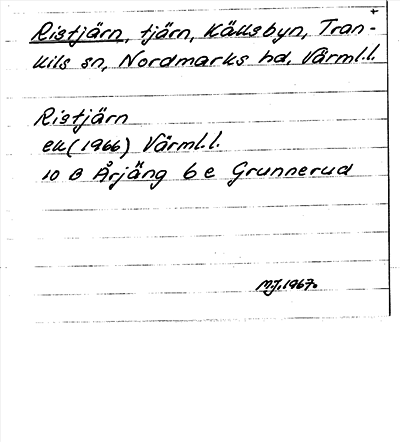 Ristjärn, tjärn, Källsbyn, Tran-
kils sn, Nordmarks hd, Värml.l.
Ristjärn
ek (1966) Värml.l.
10 B Årjäng 6 e Grunnerud
M.J. 1967.